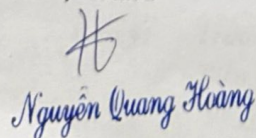 Nguyễn Quang Hoàng